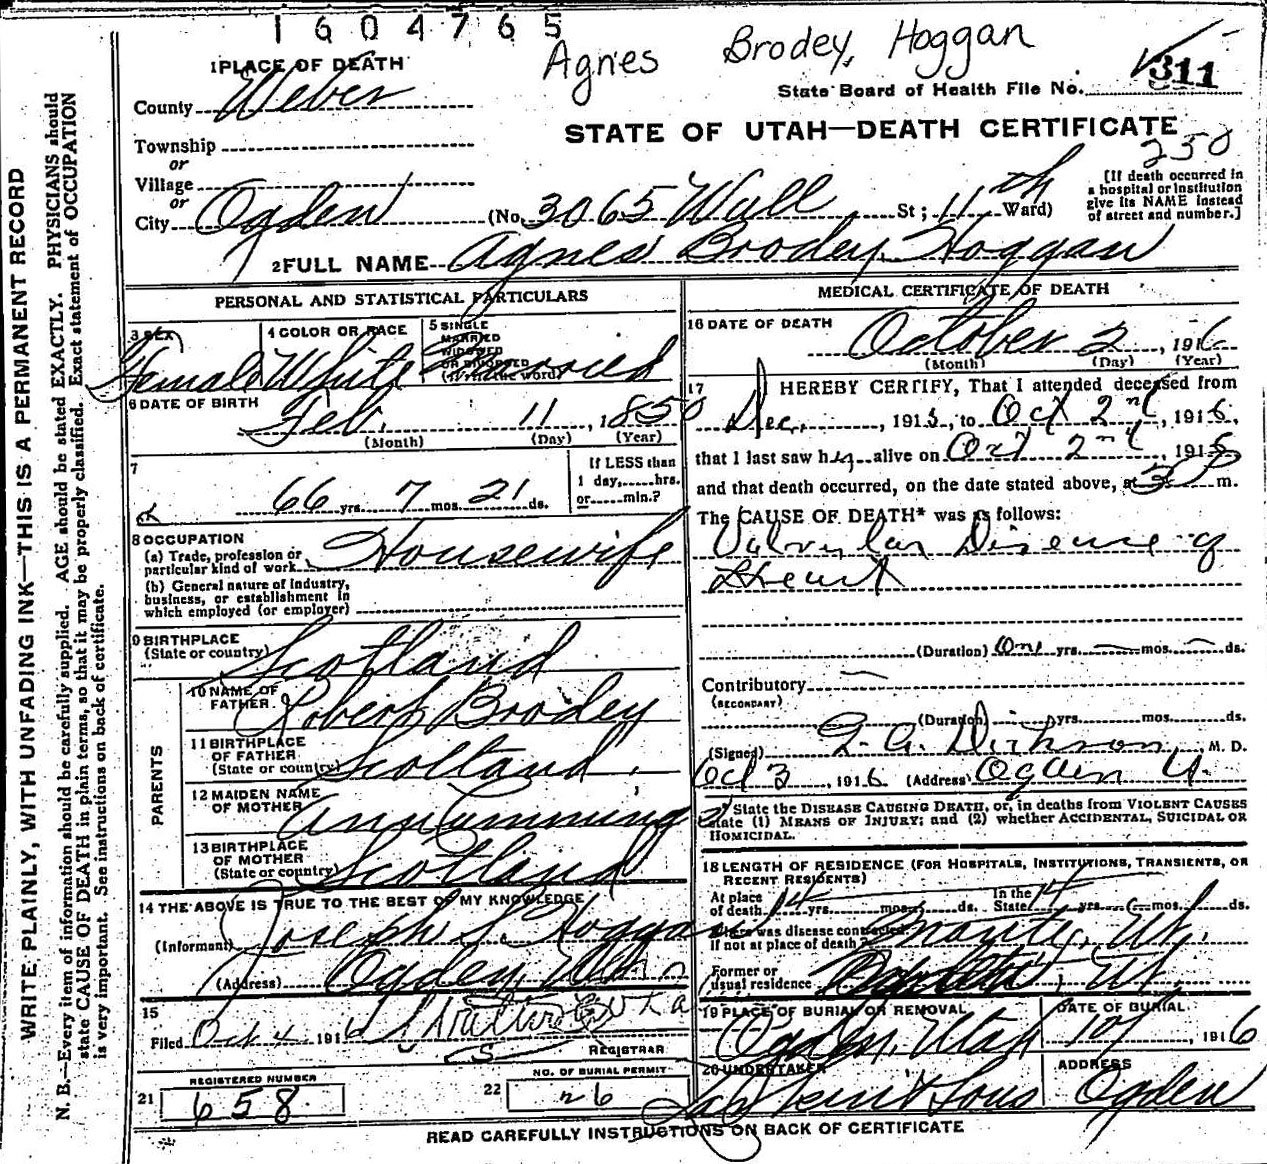 1604765
Agnes Brodey, Hoggan
1 PLACE OF DEATH
County Weber
State Board of Health File No. 311
Township
or
Village
or
City Ogden
STATE OF UTAH—DEATH CERTIFICATE
258
(No. 3065 Wall St; 11th Ward)
[If death occurred in
a hospital or institution
give its NAME instead
of street and number.]
2 FULL NAME Agnes Brodey Hoggan
WRITE PLAINLY, WITH UNFADING INK—THIS IS A PERMANENT RECORD
N. B.—Every item of information should be carefully supplied. AGE should be stated EXACTLY. PHYSICIANS should
state CAUSE OF DEATH in plain terms, so that it may be properly classified. Exact statement of OCCUPATION
is very important. See instructions on back of certificate.
PERSONAL AND STATISTICAL PARTICULARS
3 SEX
Female
4 COLOR OR RACE
White
5 SINGLE
MARRIED
WIDOWED
OR DIVORCED
(Write the word)
Married
6 DATE OF BIRTH
Feb. 11, 1850
(Month) (Day) (Year)
7
66 yrs. 7 mos. 21 ds.
If LESS than
1 day,......hrs.
or......min.?
8 OCCUPATION
(a) Trade, profession or
particular kind of work Housewife
(b) General nature of industry,
business, or establishment in
which employed (or employer)
9 BIRTHPLACE
(State or country) Scotland
PARENTS
10 NAME OF
FATHER Robert Brodey
11 BIRTHPLACE
OF FATHER
(State or country) Scotland
12 MAIDEN NAME
OF MOTHER Ann Cumming
13 BIRTHPLACE
OF MOTHER
(State or country) Scotland
14 THE ABOVE IS TRUE TO THE BEST OF MY KNOWLEDGE
(Informant) Joseph S Hoggan
(Address) Ogden, Utah
15
Filed Oct 4, 1916
REGISTRAR
REGISTERED NUMBER
21 658
NO. OF BURIAL PERMIT
22 26
MEDICAL CERTIFICATE OF DEATH
16 DATE OF DEATH
October 2, 1916
(Month) (Day) (Year)
17 I HEREBY CERTIFY, That I attended deceased from
Dec., 1915, to Oct 2nd, 1916,
that I last saw her alive on Oct 2nd, 1916
and that death occurred, on the date stated above, at 3 P m.
The CAUSE OF DEATH* was as follows:
Valvular Disease of
Heart
(Duration) One yrs. mos. ds.
Contributory
(SECONDARY)
(Duration) yrs. mos. ds.
(Signed) Dickson, M. D.
Oct 3, 1916 (Address) Ogden U.
* State the DISEASE CAUSING DEATH, or, in deaths from VIOLENT CAUSES
state (1) MEANS OF INJURY; and (2) whether ACCIDENTAL, SUICIDAL OR
HOMICIDAL.
18 LENGTH OF RESIDENCE (FOR HOSPITALS, INSTITUTIONS, TRANSIENTS, OR
RECENT RESIDENTS)
At place
of death 14 yrs. mos. ds. In the
State 14 yrs. mos. ds.
Where was disease contracted
if not at place of death? Ut.
Former or
usual residence Ut.
19 PLACE OF BURIAL OR REMOVAL
Ogden, Utah
DATE OF BURIAL
10/ , 1916
20 UNDERTAKER
Sons
ADDRESS
Ogden
READ CAREFULLY INSTRUCTIONS ON BACK OF CERTIFICATE